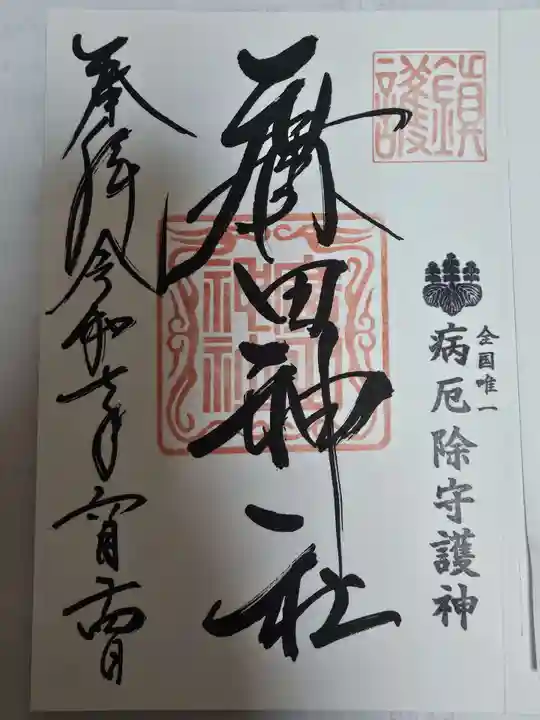 鎮護
全国唯一
病厄除守護神
廣田神社
廣田神社
奉拝 令和七年六月